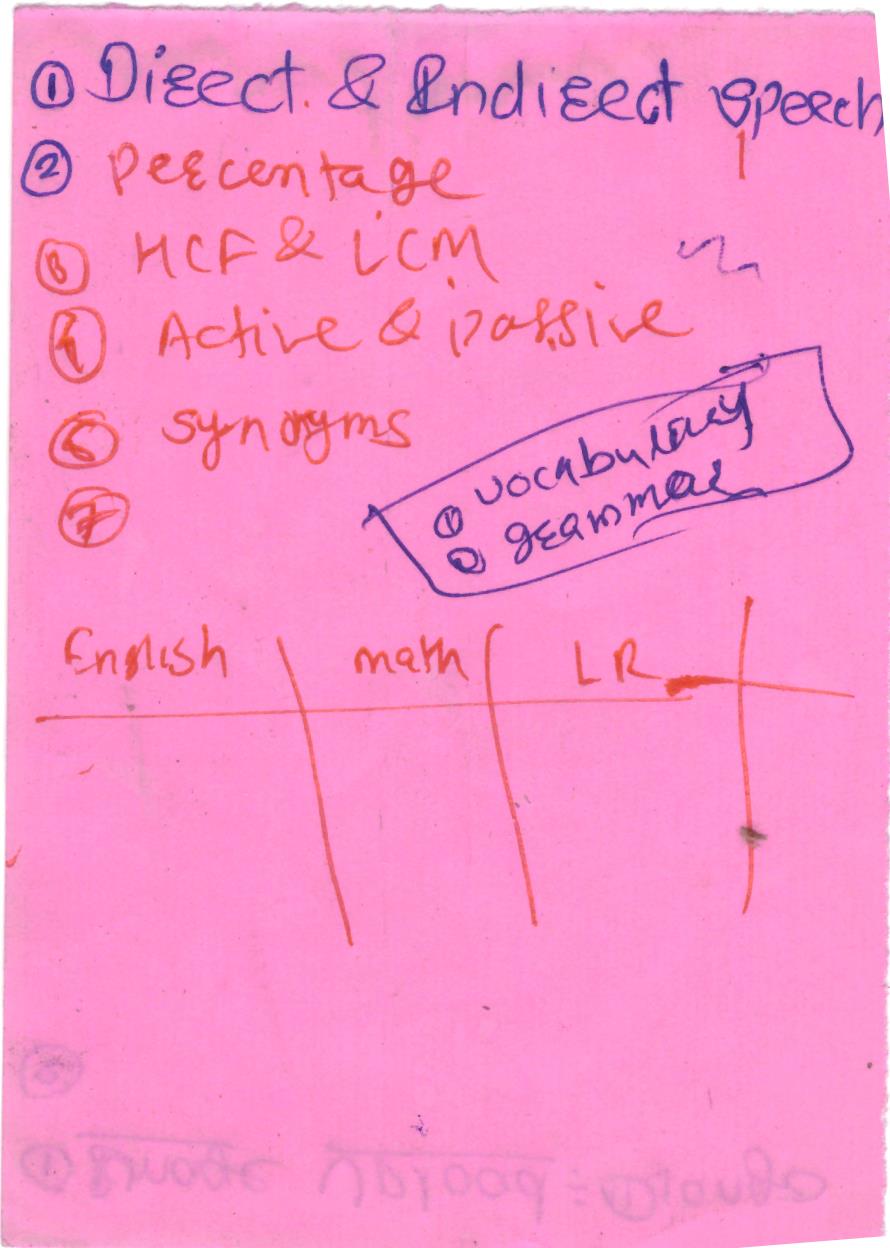 ① Direct & Indirect speech
② Percentage
③ HCF & LCM
④ Active & passive
⑤ synonyms
⑦
① vocabulary
② grammar
English math LR